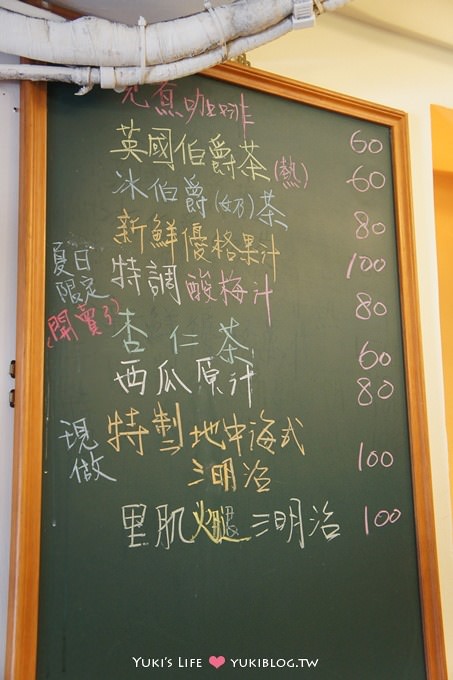 煮咖啡 60
英國伯爵茶(熱) 60
冰伯爵(奶)茶 80
新鮮優格果汁 100
夏日
限定
(開賣了)
特調酸梅汁 80
杏仁茶 60
西瓜原汁 80
現
做
特製地中海式
三明治 100
里肌火腿三明治 100
YUKI'S LIFE ❤ YUKIBLOG.TW